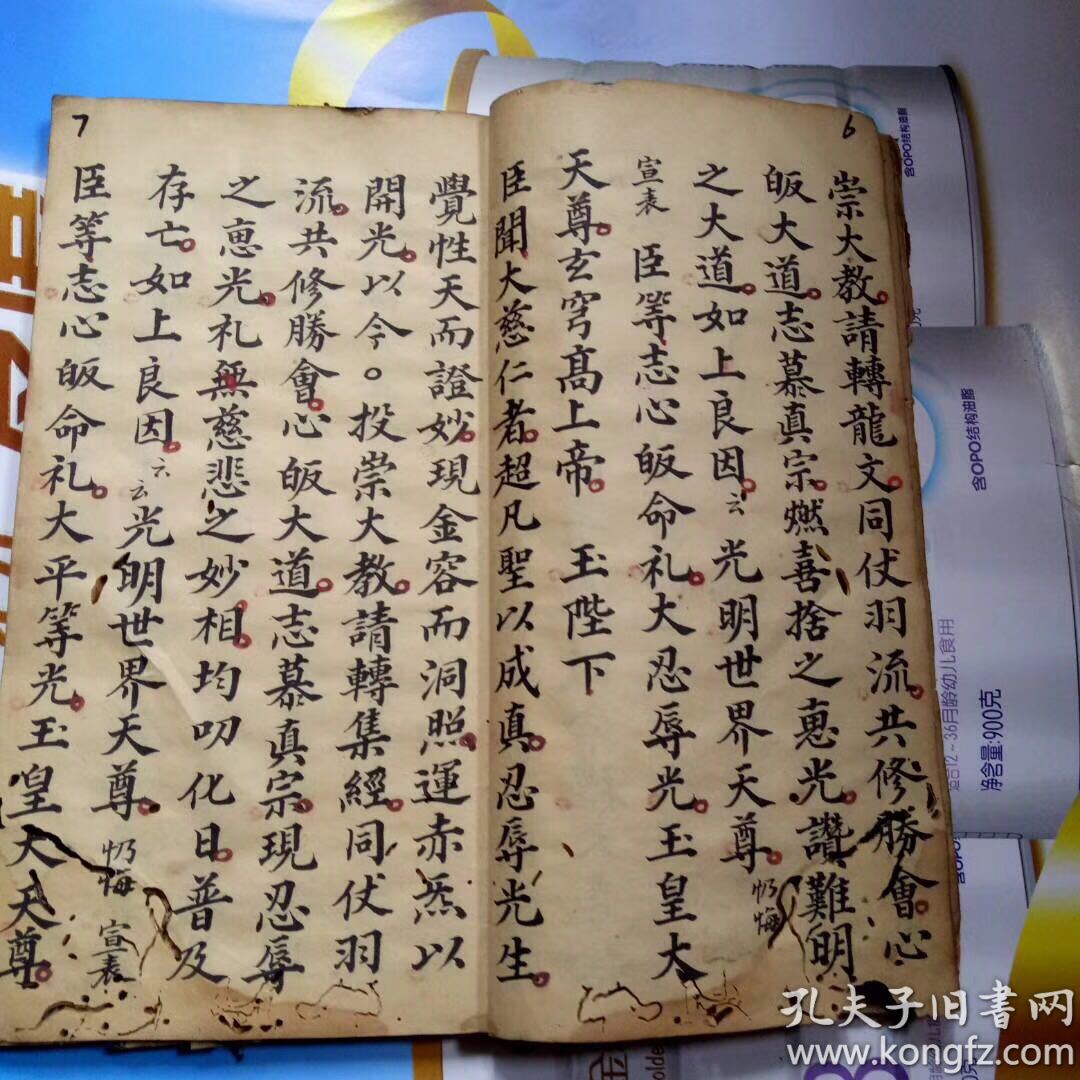 6
崇大教請轉龍文同伏羽流共修勝會心
皈大道志慕真宗燃喜捨之恵光讚難明
之大道如上良因云光明世界天尊仍悔
宣表 臣等志心皈命礼大忍辱光玉皇大
天尊玄穹髙上帝 玉陛下
臣聞大慈仁者超凡聖以成真忍辱光生
7
覺性天而證妙現金容而洞照運赤炁以
開光以今。投崇大教請轉集經同伏羽
流共修勝會心皈大道志慕真宗現忍辱
之恵光礼無慈悲之妙相均叨化日普及
存亡如上良因云云光明世界天尊仍悔 宣表
臣等志心皈命礼大平等光玉皇大天尊
含OPO结构油脂
含OPO结构油脂
适合12~36月龄幼儿食用
净含量:900克
孔夫子旧书网
www.kongfz.com